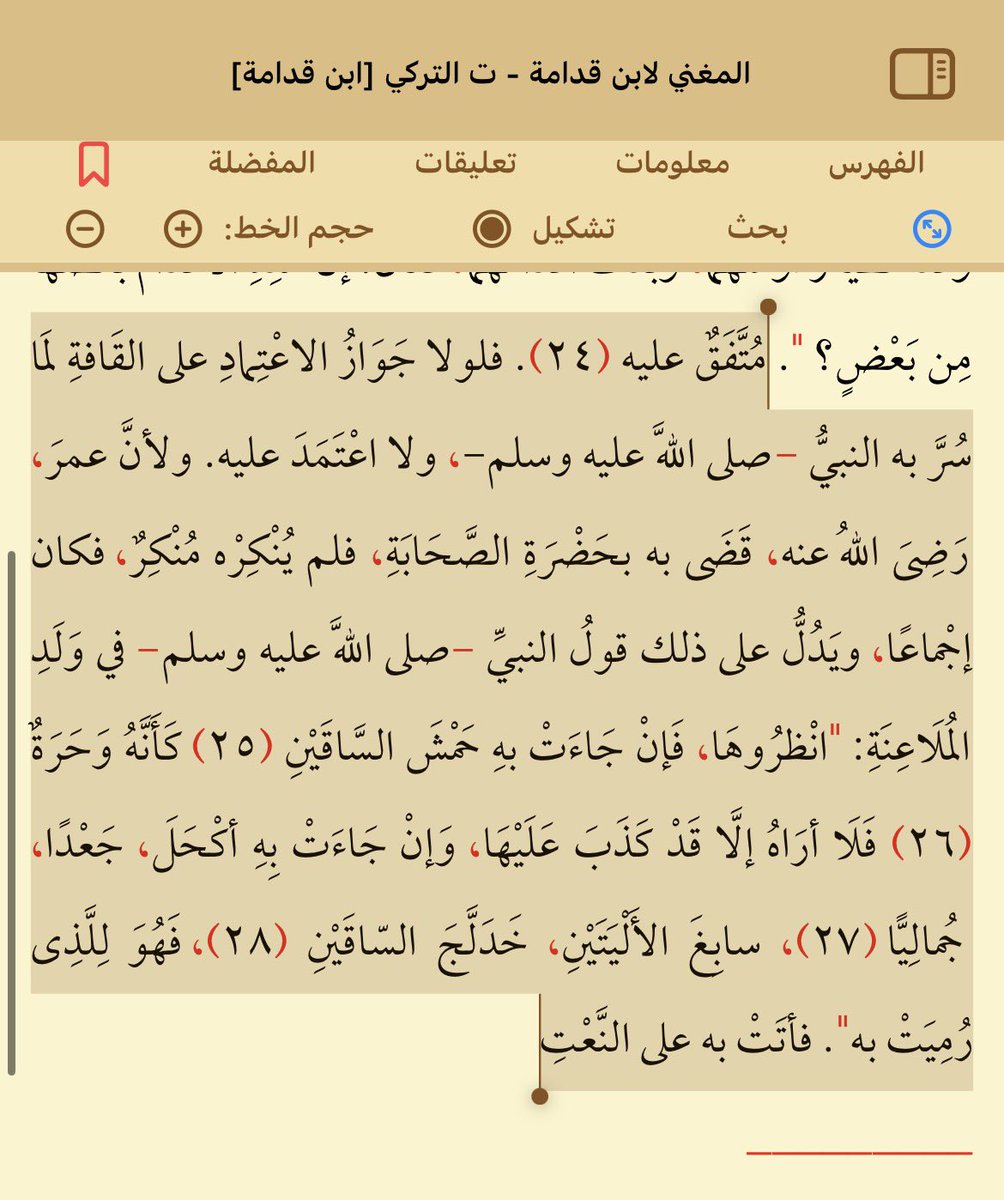 المغني لابن قدامة - ت التركي [ابن قدامة]
الفهرس معلومات تعليقات المفضلة
بحث تشكيل حجم الخط:
مِن بَعْضٍ؟ ". مُتَّفَقٌ عليه (٢٤). فلولا جَوَازُ الاعْتِمادِ على القَافةِ لَمَا
سُرَّ به النبيُّ -صلى اللَّه عليه وسلم-، ولا اعْتَمَدَ عليه. ولأنَّ عمرَ،
رَضِىَ اللهُ عنه، قَضَى به بحَضْرَةِ الصَّحَابَةِ، فلم يُنْكِرْه مُنْكِرٌ، فكان
إجْماعًا، ويَدُلُّ على ذلك قولُ النبيِّ -صلى اللَّه عليه وسلم- في وَلَدِ
المُلَاعِنَةِ: "انْظُرُوهَا، فَإنْ جَاءَتْ بهِ حَمْشَ السَّاقَيْنِ (٢٥) كَأَنَّهُ وَحَرَةٌ
(٢٦) فَلَا أرَاهُ إلَّا قَدْ كَذَبَ عَلَيْهَا، وَإنْ جَاءَتْ بِهِ أكْحَلَ، جَعْدًا،
جُمالِيًّا (٢٧)، سابِغَ الأَلْيَتَيْنِ، خَدَلَّجَ السّاقَيْنِ (٢٨)، فَهُوَ لِلَّذِى
رُمِيَتْ به". فأتَتْ به على النَّعْتِ